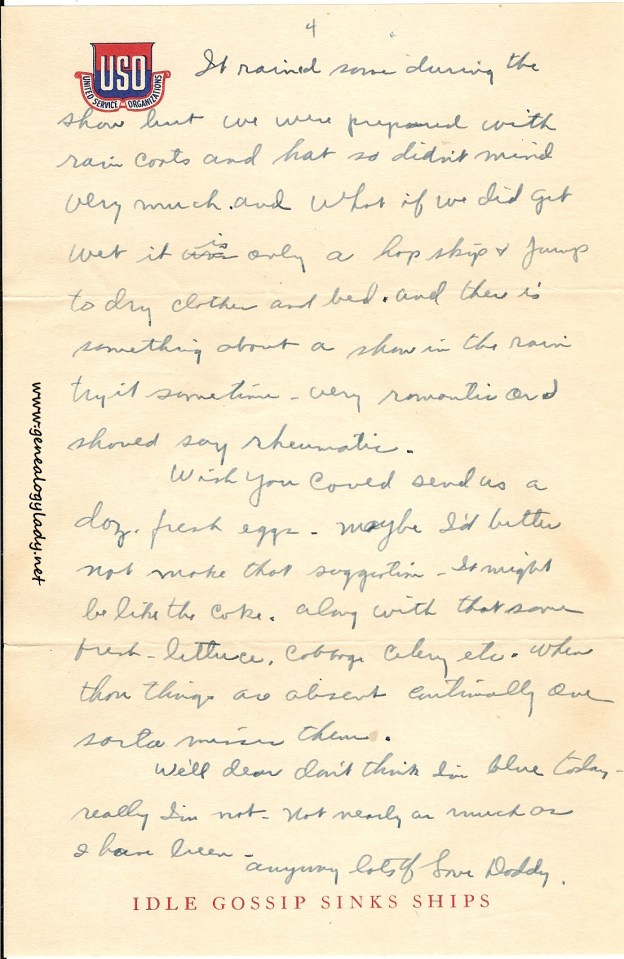 4
USO
UNITED SERVICE ORGANIZATIONS
It rained some during the
show but we were prepared with
rain coats and hat so didn't mind
very much. and what if we did get
wet it was is only a hop skip & jump
to dry clothes and bed. and there is
something about a show in the rain
try it sometime - very romantic and
should say rheumatic.
Wish you could send us a
doz. fresh eggs - maybe I'd better
not make that suggestion - It might
be like the coke. along with that some
fresh - lettuce, cabbage celery etc. When
those things are absent continually one
sorta misses them.
Well dear don't think I'm blue today -
really I'm not - not nearly as much as
I have been -
anyway lots of love Daddy.
IDLE GOSSIP SINKS SHIPS
www.genealogylady.net